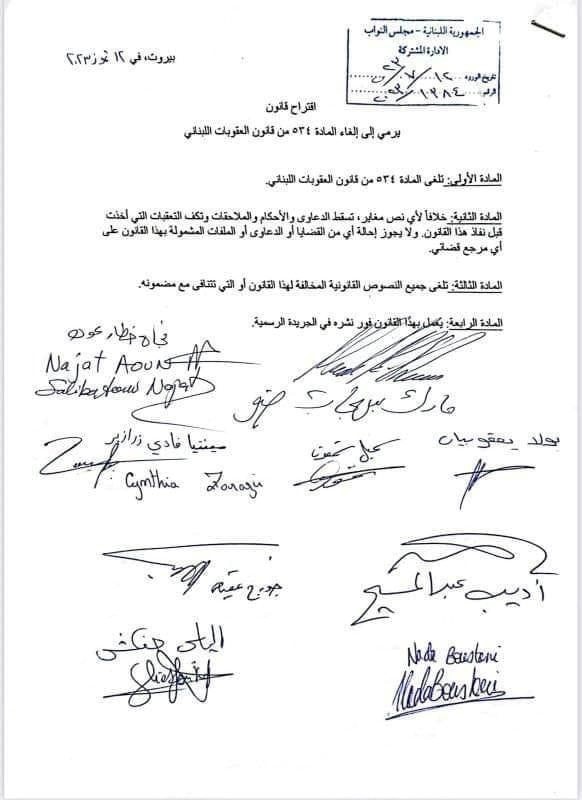 الجمهورية اللبنانية - مجلس النواب
الإدارة المشتركة
تاريخ الورود ١٢/٧/٢٣
الرقم ١٣٨٤/٢٣
بيروت، في ١٢ تموز ٢٠٢٣
اقتراح قانون
يرمي إلى إلغاء المادة ٥٣٤ من قانون العقوبات اللبناني
المادة الأولى: تلغى المادة ٥٣٤ من قانون العقوبات اللبناني.
المادة الثانية: خلافاً لأي نص مغاير، تسقط الدعاوى والأحكام والملاحقات وتكف التعقبات التي أخذت
قبل نفاذ هذا القانون. ولا يجوز إحالة أي من القضايا أو الدعاوى أو الملفات المشمولة بهذا القانون على
أي مرجع قضائي.
المادة الثالثة: تلغى جميع النصوص القانونية المخالفة لهذا القانون أو التي تتنافى مع مضمونه.
المادة الرابعة: يُعمل بهذا القانون فور نشره في الجريدة الرسمية.
نجاة خطار عون
Najat Aoun
مارك بهجات ضو
بولا يعقوبيان
سينتيا فادي زرازير
Cynthia Zarazir
أديب عبد المسيح
جورج عقيص
الياس حنكش
Nada Boustani
Nada Boustani